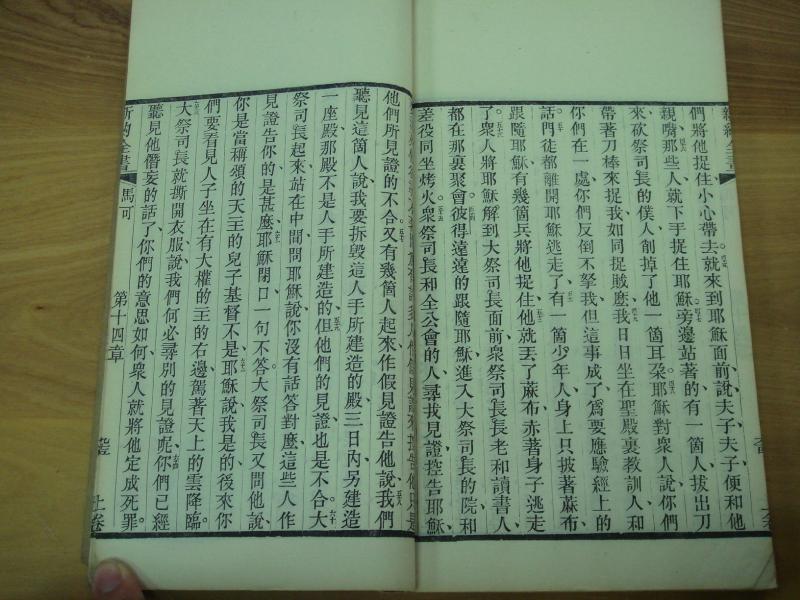 們將他捉住、小心帶去。就來到耶穌面前、說、夫子、夫子、便和他
親嘴。那些人、就下手捉住耶穌。旁邊站著的有一個人、拔出刀
來、砍祭司長的僕人、削掉了他一箇耳朶。耶穌對衆人說、你們
帶著刀棒來捉我、如同捉賊麽。我日日坐在聖殿裏教訓人、和
你們在一處、你們反倒不拏我、但這事成了、爲要應驗經上的
話。門徒都離開耶穌逃走了。有一箇少年人、身上只披著蔴布、
跟隨耶穌、有幾箇兵將他捉住、他就丟了蔴布、赤著身子逃走
了。衆人將耶穌解到大祭司長面前、衆祭司長、長老、和讀書人、
都在那裏聚會。彼得遠遠的跟隨耶穌、進入大祭司長的院、和
差役同坐烤火。衆祭司長和全公會的人、尋找見證控告耶穌、
他們所見證的不合。又有幾箇人起來、作假見證告他、說、我們
聽見這箇人說、我要拆毀這人手所建造的殿、三日內另建造
一座殿、那殿不是人手所建造的。但他們的見證也是不合。大
祭司長起來、站在中間、問耶穌說、你沒有話答對麽、這些人作
見證告你的是甚麽。耶穌閉口、一句不答。大祭司長又問他說、
你是當稱頌的天主的兒子基督不是。耶穌說、我是的、後來你
們要看見人子坐在有大權的主的右邊、駕著天上的雲降臨。
大祭司長就撕開衣服、說、我們何必尋別的見證呢。你們已經
聽見他僭妄的話了、你們的意思如何、衆人就將他定成死罪。
新約全書 馬可 第十四章 上卷